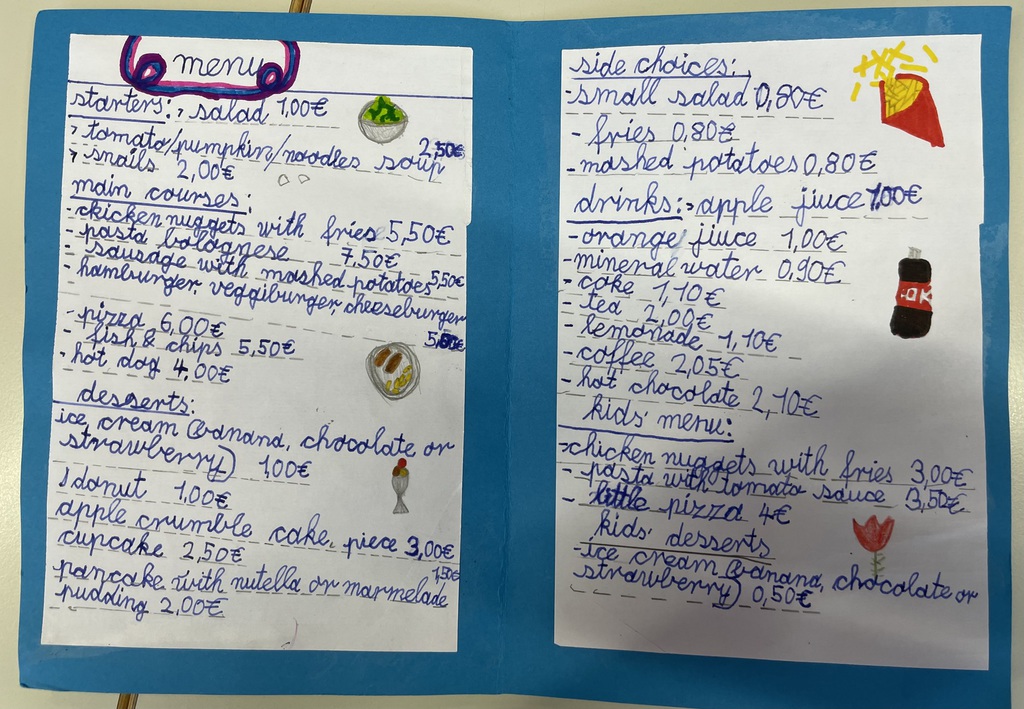 menu
starters: , salad 1,00€
, tomato/pumpkin/noodles soup 2,50€
, snails 2,00€
main courses:
- chicken nuggets with fries 5,50€
- pasta bolognese 7,50€
- sausage with mashed potatoes 5,50€
- hamburger, veggiburger, cheeseburger
- pizza 6,00€
- fish & chips 5,50€
- hot dog 4,00€
desserts:
ice cream (banana, chocolate or
strawberry) 1,00€
1 donut 1,00€
apple crumble cake, piece 3,00€
cupcake 2,50€
1,50€
pancake with nutella or marmelade
pudding 2,00€
side choices:
- small salad 0,80€
- fries 0,80€
- mashed potatoes 0,80€
drinks: - apple jiuce 1,00€
- orange jiuce 1,00€
- mineral water 0,90€
- coke 1,10€
- tea 2,00€
- lemonade 1,10€
- coffee 2,05€
- hot chocolate 2,10€
kids' menu:
- chicken nuggets with fries 3,00€
- pasta with tomato sauce 3,50€
- little pizza 4€
kids' desserts
- ice cream (banana, chocolate or
strawberry) 0,50€